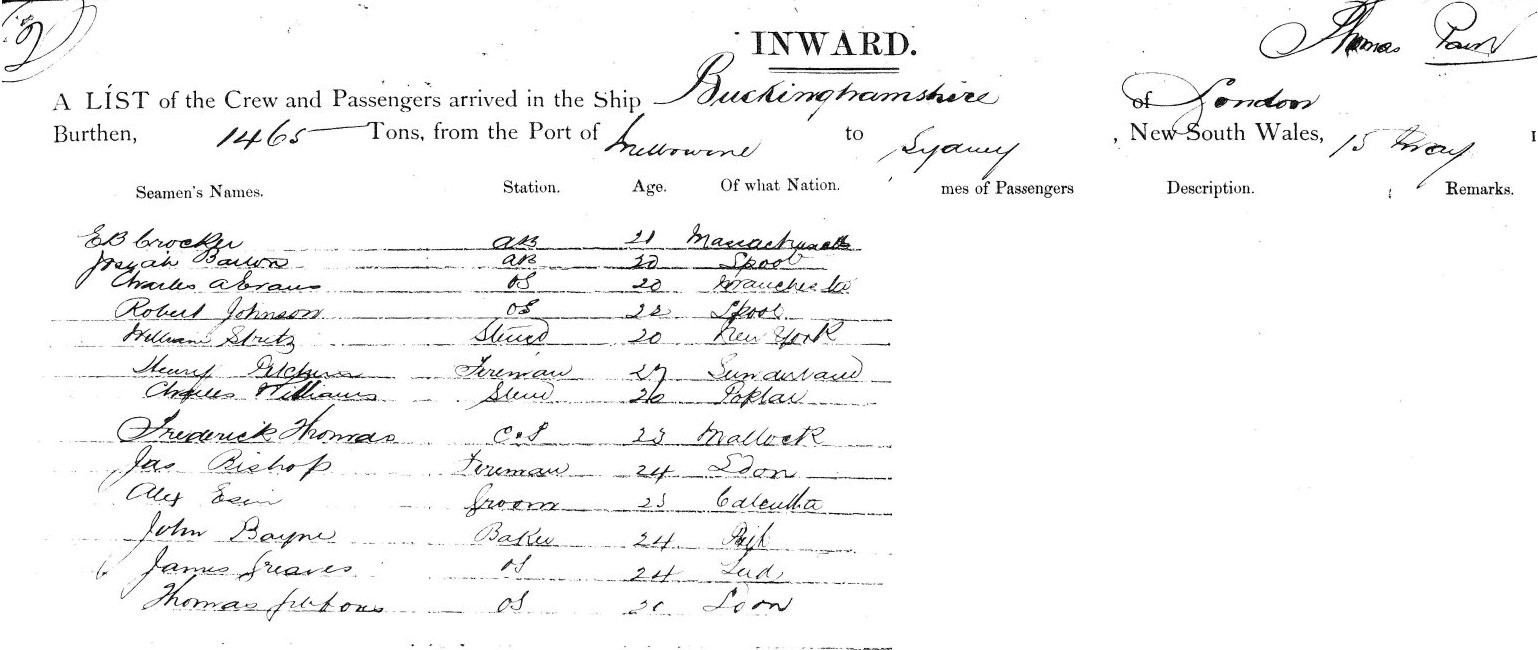 2
INWARD.
Thomas
A LIST of the Crew and Passengers arrived in the Ship Buckinghamshire of London
Burthen, 1465 Tons, from the Port of Melbourne to Sydney, New South Wales, 15 May 1
Seamen's Names. Station. Age. Of what Nation. mes of Passengers Description. Remarks.
EB Crocker AB 21 Massachusetts
Josiah Barton AB 20 Lpool
Charles A Evans OS 20 Manchester
Robert Johnson OS 22 Lpool
William Stretz Stewd 20 New York
Henry Fireman 27 Sunderland
Charles Williams Stewd 26 Poplar
Frederick Thomas 23 Matlock
Jas Bishop Fireman 24 Ldon
Alex Groom 23 Calcutta
John Bayne Baker 24
James Greaves OS 24
Thomas Gibbons OS Ldon